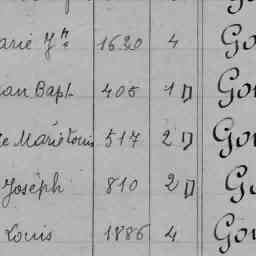 arie Jne 1620 4 Go
an Bapt. 405 1 D Go
e Marie Louis 517 2 D Go
Joseph 810 2 D Go
Louis 1886 4 Go